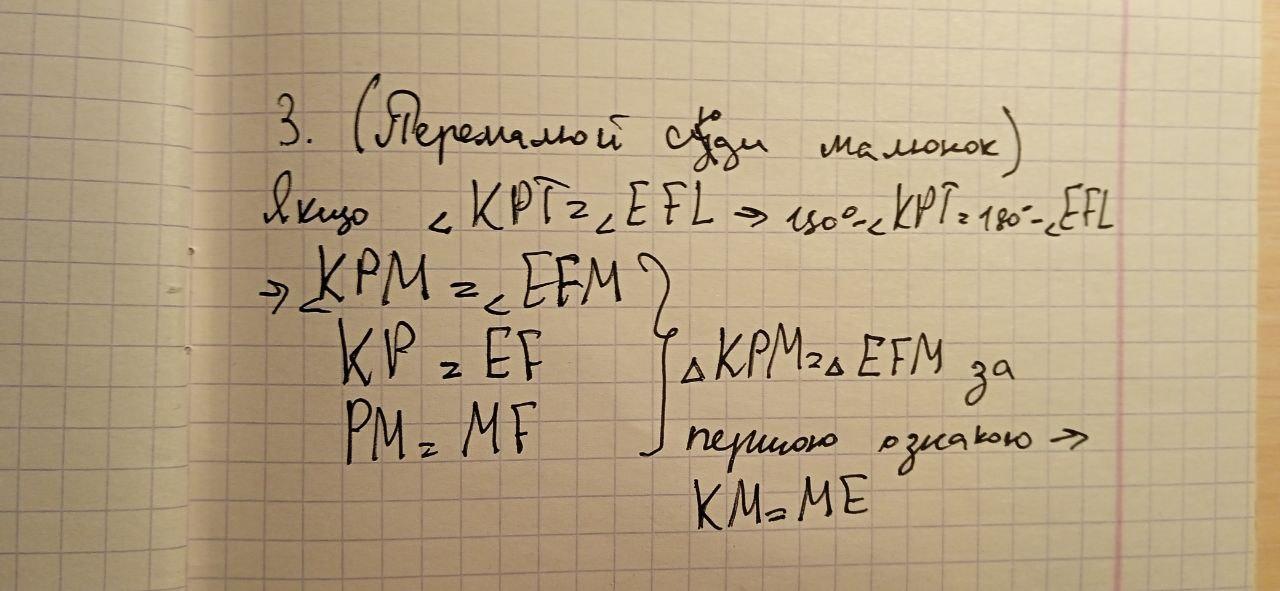 3. (Перемалюй сюди малюнок)
Якщо ∠KPT = ∠EFL → 180° - ∠KPT = 180° - ∠EFL
→ ∠KPM = ∠EFM
KP = EF
PM = MF
△KPM = △EFM за
першою ознакою →
KM = ME